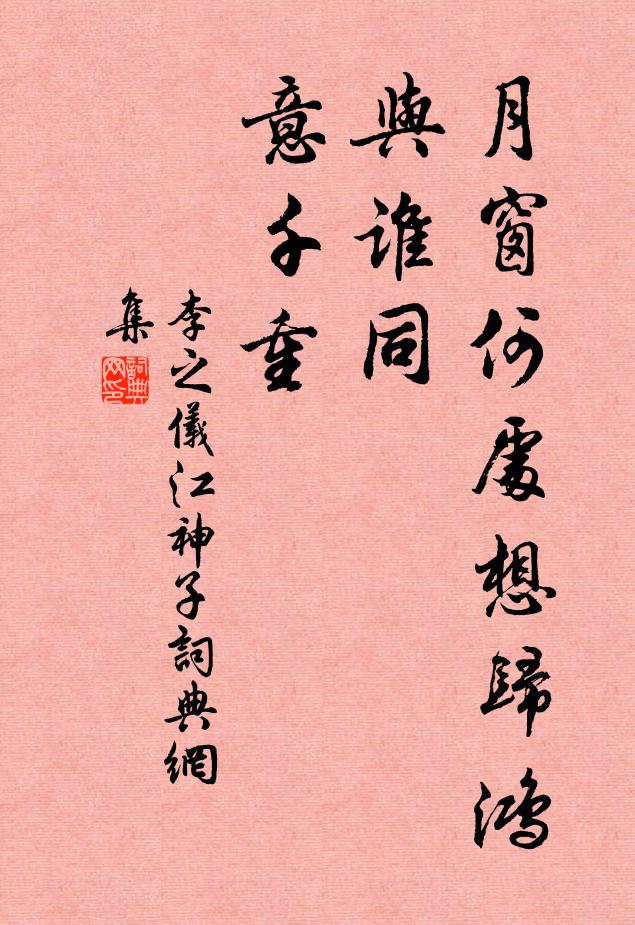 月窗何處想歸鴻
與誰同
意千重
李之儀江神子詞典網
集
詞典
网印